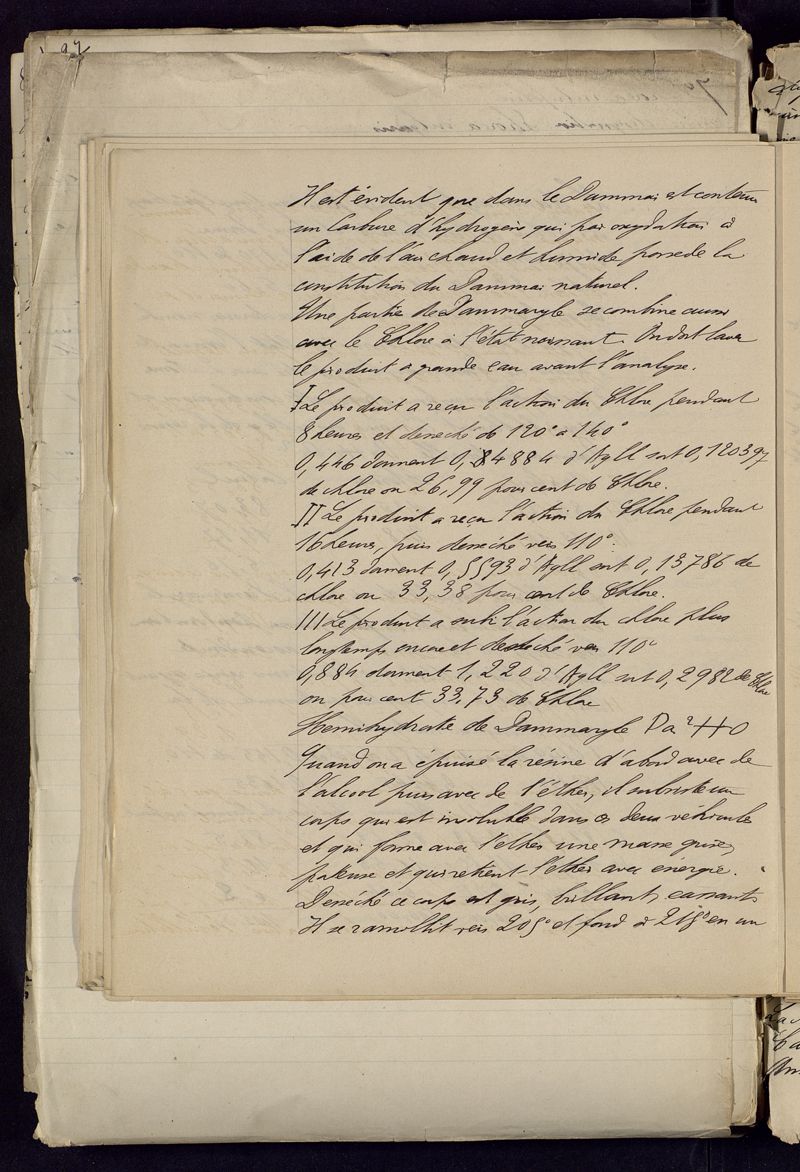 97
Il est évident que dans le Dammar est contenu
un Carbure d'hydrogène qui par oxydation à
l'aide de l'air chaud et humide possede la
constitution du Dammar naturel.
Une partie de Dammaryle se combine aussi
avec le Chlore à l'état naissant. On doit laver
le produit à grande eau avant l'analyse.
I Le produit a reçu l'action du Chlore pendant
8 heures et desseché de 120° à 140°
0,446 donnent 0,84884 d'AgCl soit 0,120397
de chlore ou 26,99 pour cent de Chlore.
II Le produit a reçu l'action du Chlore pendant
16 heures, puis desséché vers 110°:
0,413 donnent 0,5593 d'AgCl soit 0,13786 de
chlore ou 33,38 pour cent de Chlore.
III Le produit a subi l'action du chlore plus
longtemps encore et desséché vers 110°
0,884 donnent 1,220 d'AgCl soit 0,2982 de Chlore
ou pour cent 33,73 de Chlore
Hemihydrate de Dammaryle Da² HO
Quand on a épuisé la résine d'abord avec de
l'alcool puis avec de l'éther, il subsiste un
corps qui est insoluble dans ces deux véhicule
et qui forme avec l'ether une masse grise,
pateuse et qui retient l'éther avec énergie.
Desséché ce corps est gris, brillant, cassant
Il se ramollit vers 205° et fond à 215° en un